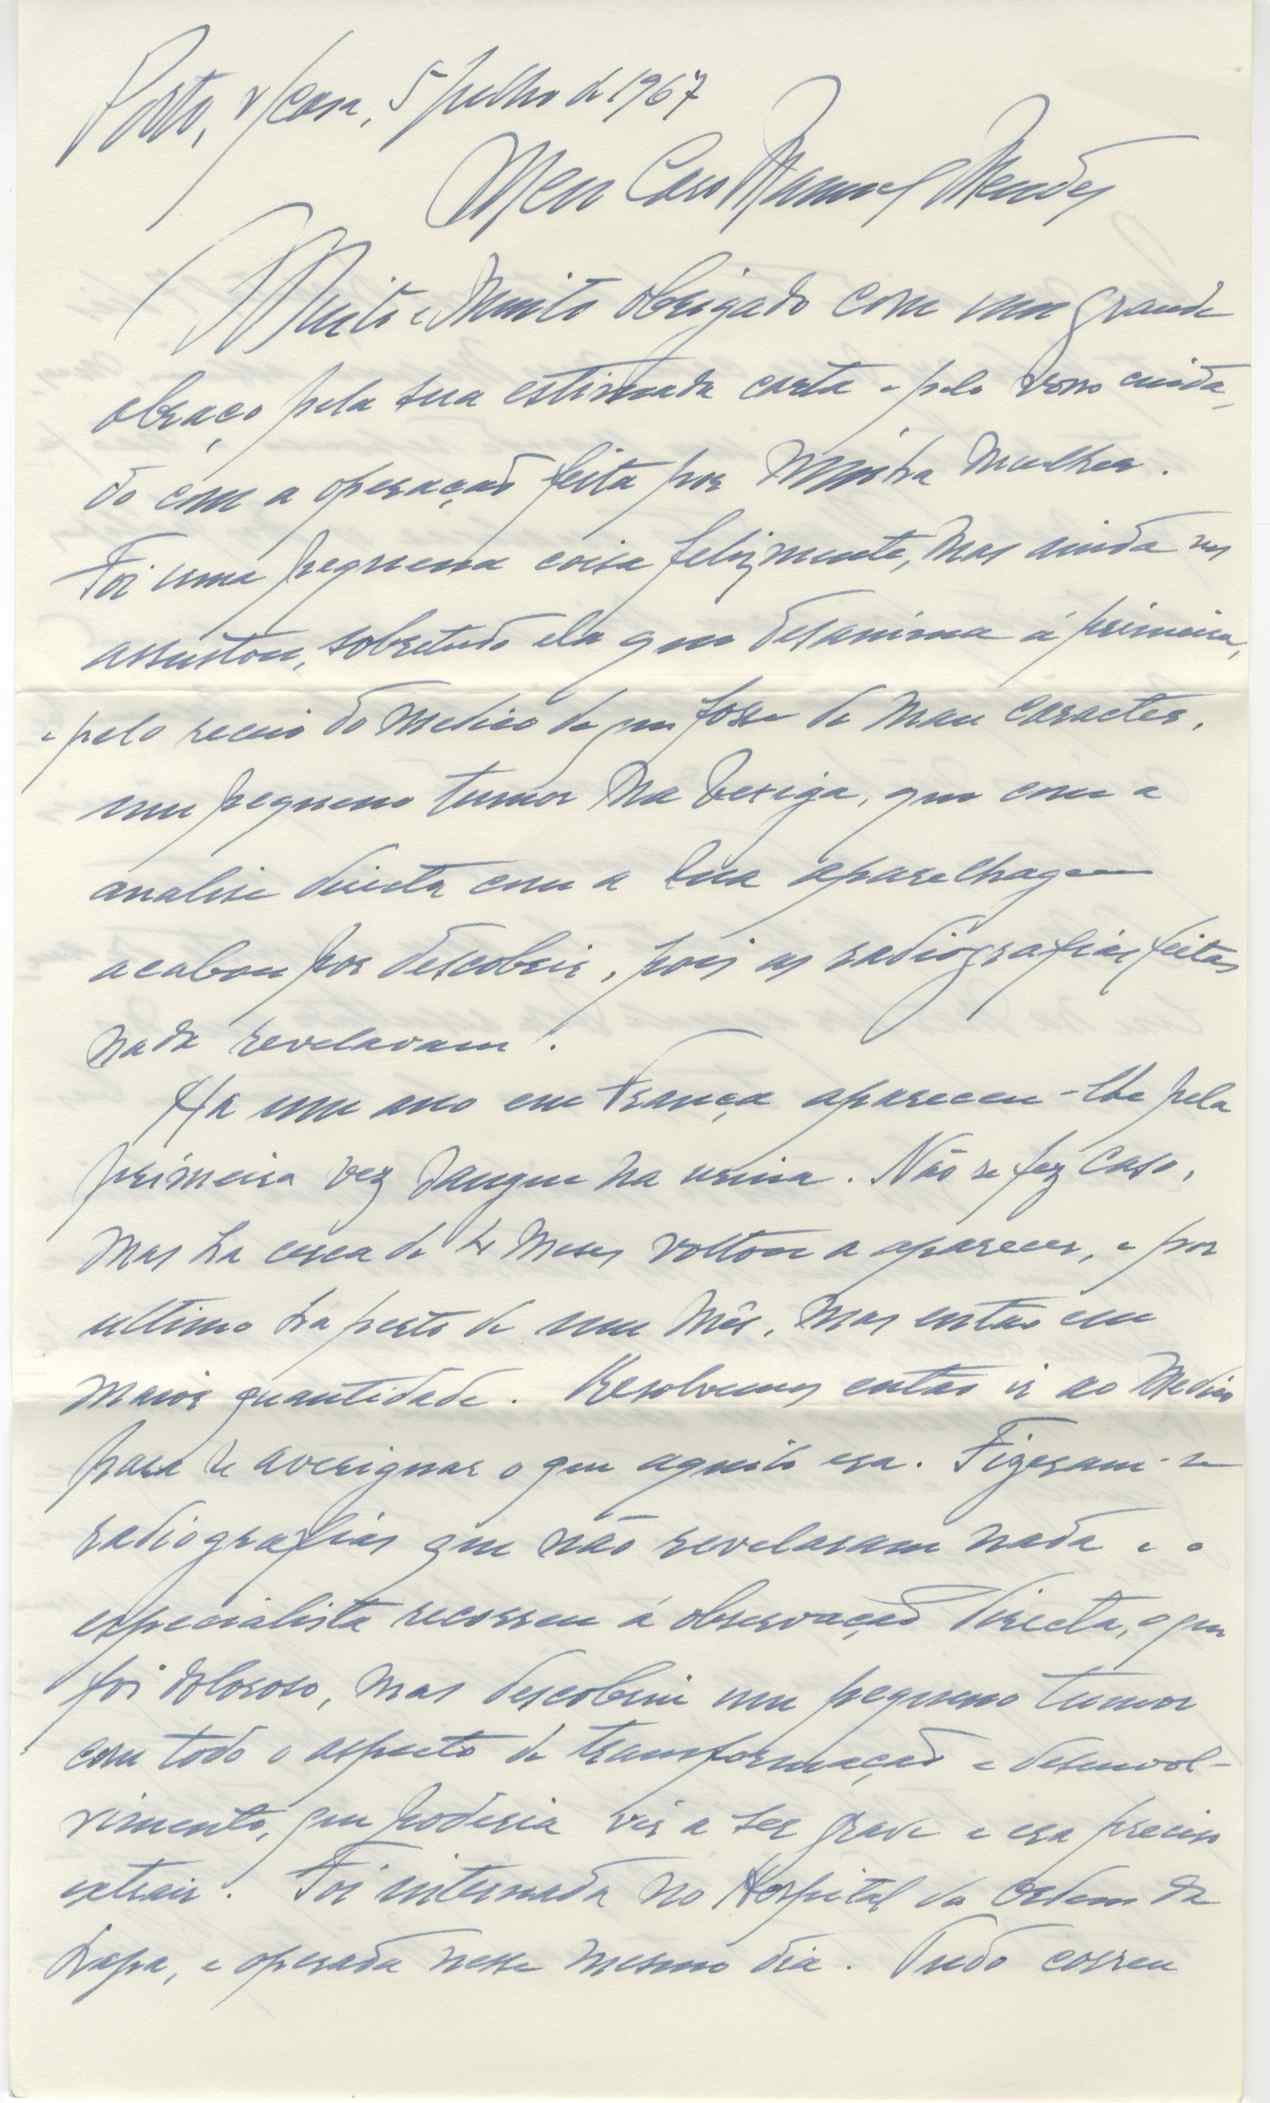 Porto, v/casa, 5 Julho de 1967
Meu Caro Manuel Mendes
Muito e Muito obrigado com um grande
abraço pela sua estimada carta e pelo vosso cuida-
do com a operação feita por Minha Mulher.
Foi uma pequena coisa felizmente, mas ainda nos
assustou, sobretudo ela que desanima á primeira,
e pelo receio do Medico de que fosse de Mau caracter,
um pequeno tumor Na bexiga, que com a
analise directa com a sua aparelhagem
acabou por descobrir, pois as radiografias feitas
nada revelavam.
Ha um ano em França apareceu-lhe pela
primeira vez sangue na urina. Não se fez caso,
Mas ha cerca de 4 Meses voltou a aparecer, e por
ultimo ha perto de um Mês, Mas então em
Maior quantidade. Resolvemos então ir ao Medico
para se averiguar o que aquilo era. Fizeram-se
radiografias que não revelaram nada e o
especialista recorreu á observação directa, o que
foi doloroso, Mas descobriu um pequeno tumor
com todo o aspecto de transformação e desenvol-
vimento, que poderia vir a ser grave e era preciso
extrair. Foi internada no Hospital da Ordem da
Lapa, e operada nesse mesmo dia. Tudo correu